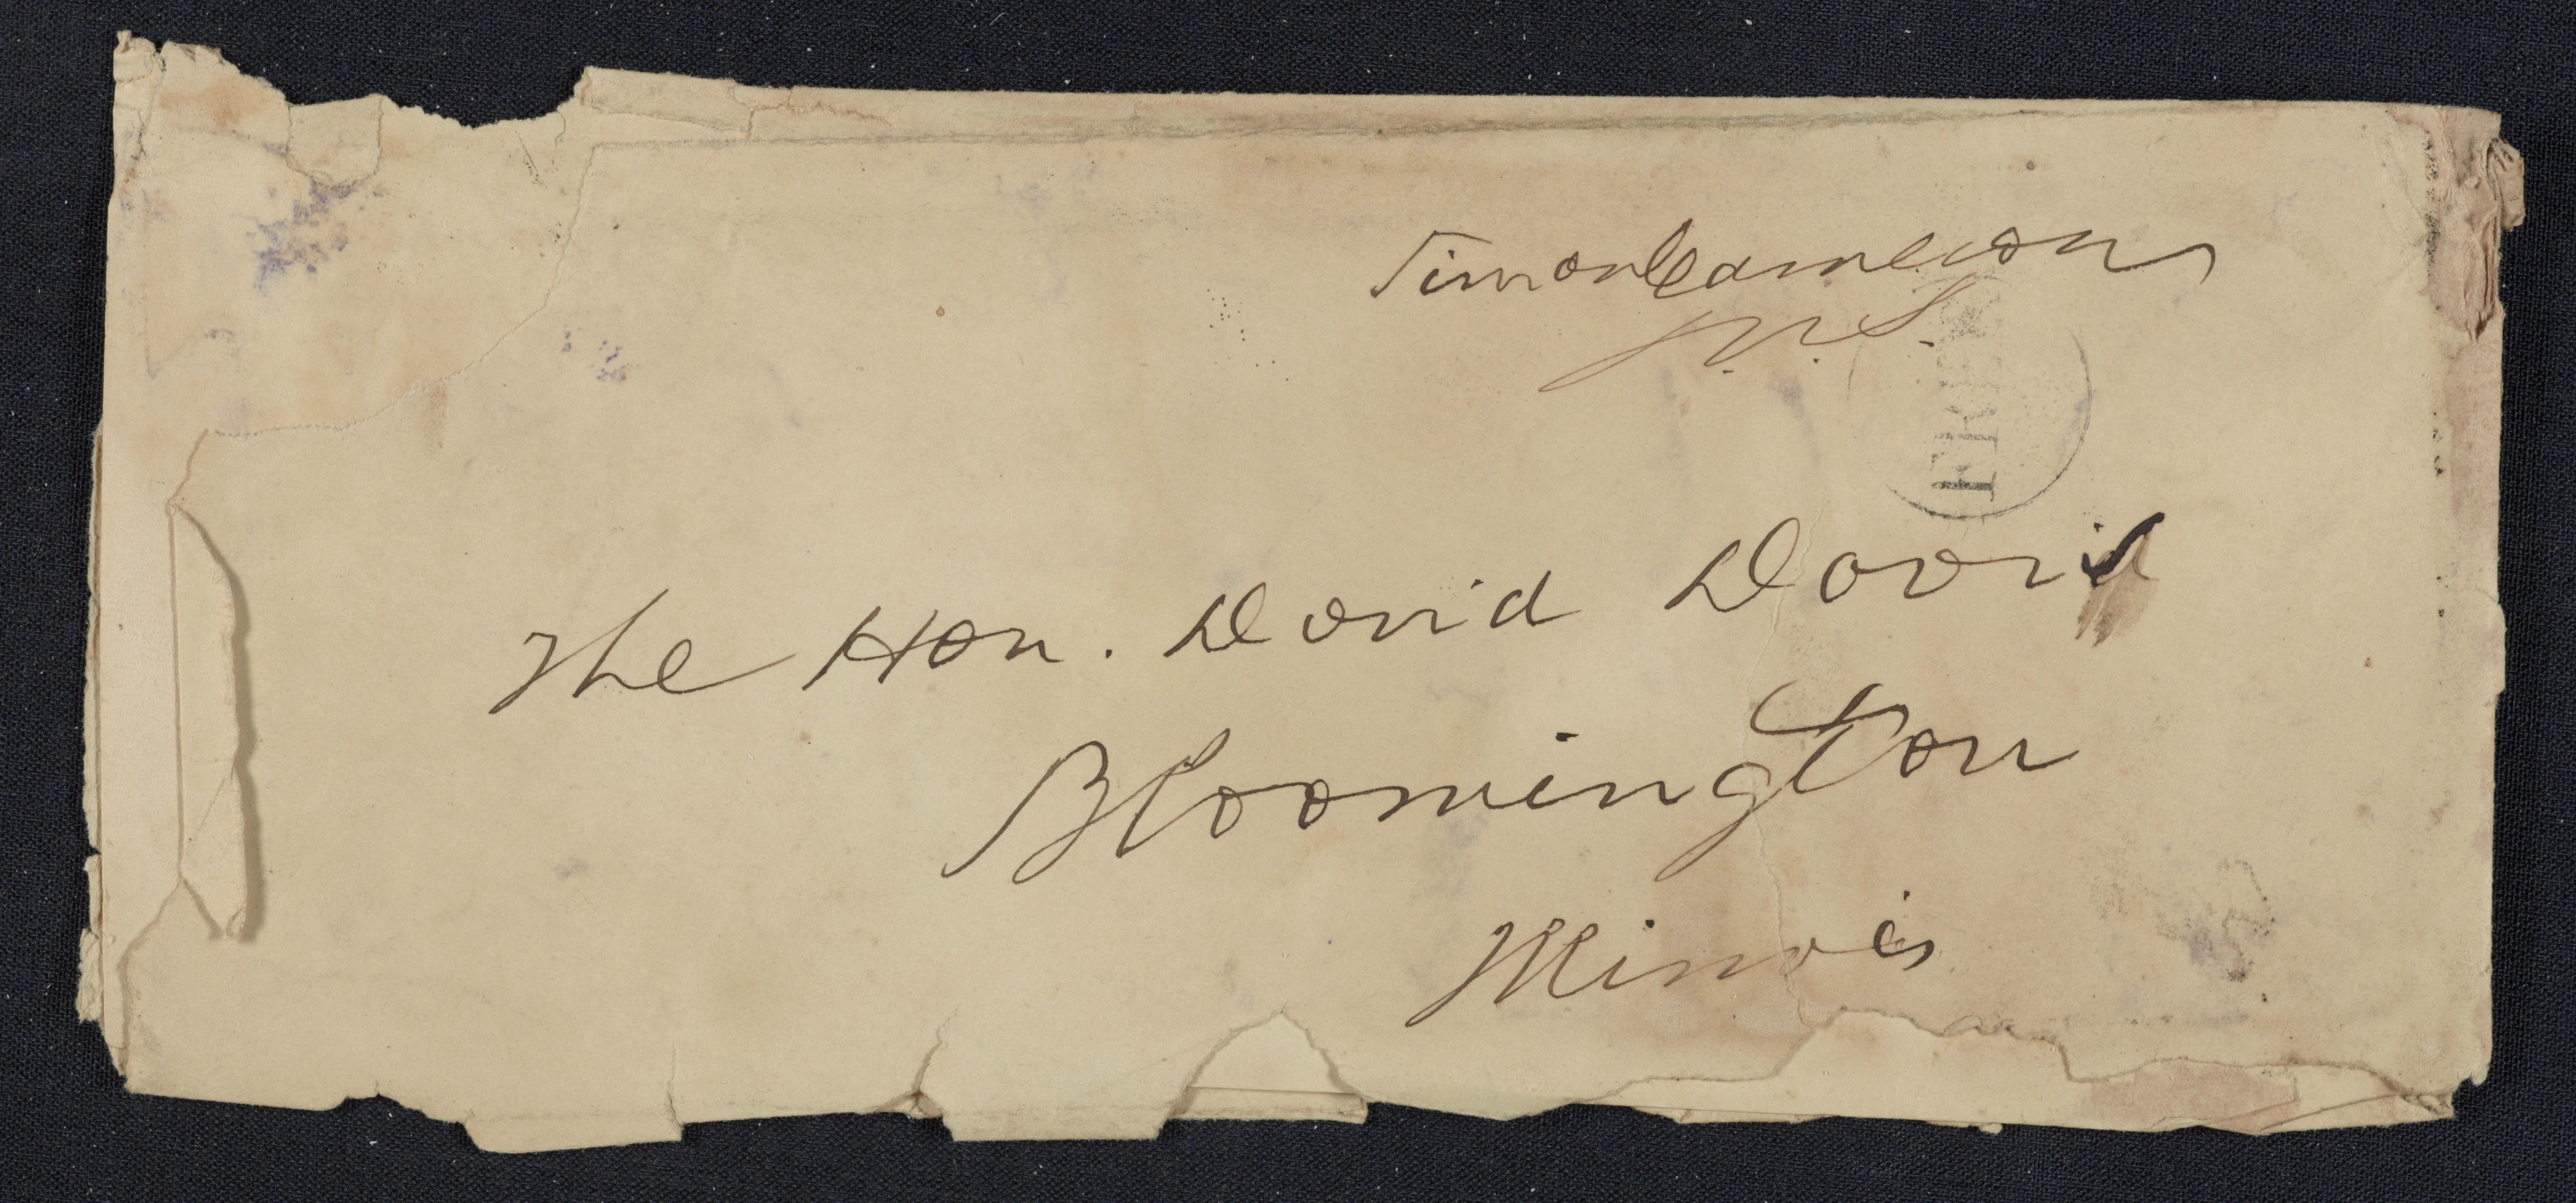 Simon Cameron
U.S.
FREE
The Hon. David Davis
Bloomington
Illinois